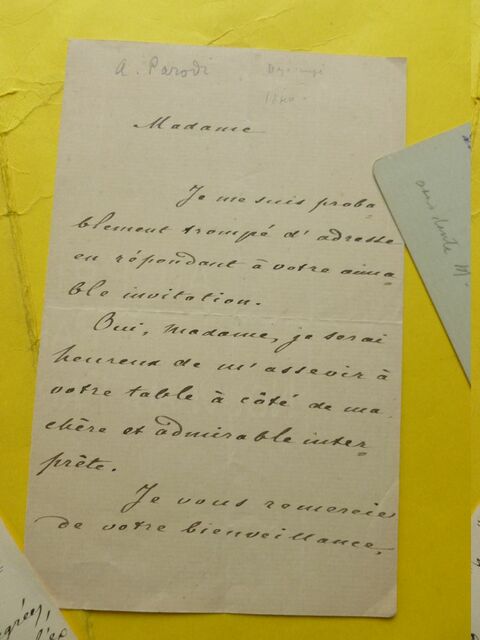 A. Parodi
Madame
Je me suis proba-
blement trompé d'adresse
en répondant à votre aima-
ble invitation.
Oui, Madame, je serai
heureux de m'asseoir à
votre table à côté de ma
chère et admirable inter-
prète.
Je vous remercie
de votre bienveillance,
M.